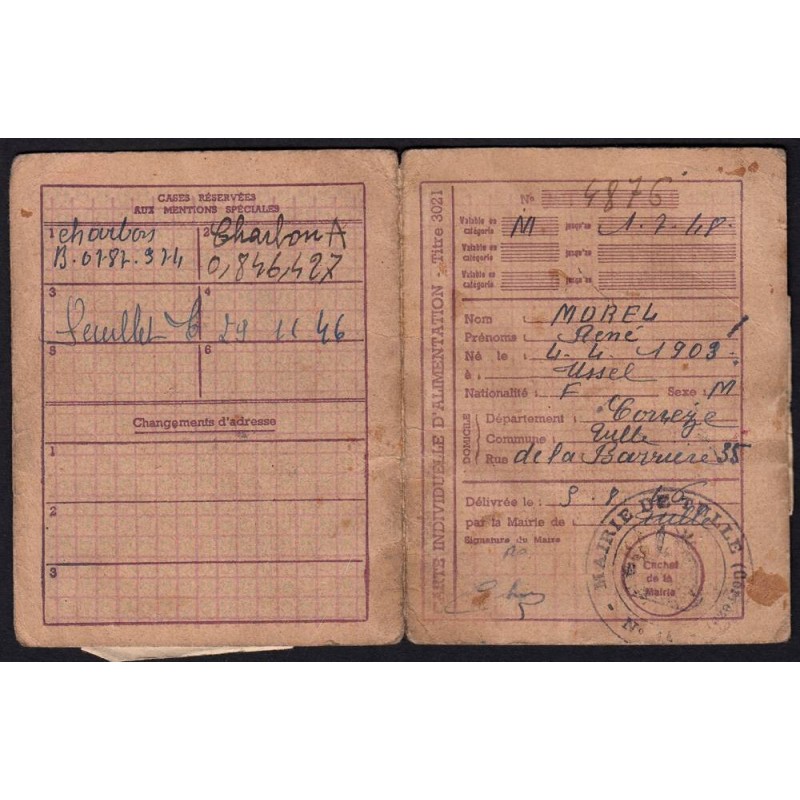 CASES RÉSERVÉES
AUX MENTIONS SPÉCIALES
1 Charbon
B.0787.974
2 Charbon A
0,846,427
3 feuillet C
4 29 11 46
5
6
Changements d'adresse
1
2
3
CARTE INDIVIDUELLE D'ALIMENTATION - Titre 3021
No 4876
Valable en catégorie M. jusqu'au 1.7.48.
Valable en catégorie jusqu'au
Valable en catégorie jusqu'au
Nom MOREL
Prénoms René
Né le 4.4.1903
à Ussel
Nationalité F Sexe: M
DOMICILE
Département: Corrèze
Commune: Tulle
Rue de la Barrière 35
Délivrée le: 9.8.46
par la Mairie de Tulle
Signature du Maire
Cachet
de la
Mairie
MAIRIE DE TULLE (Corrèze)